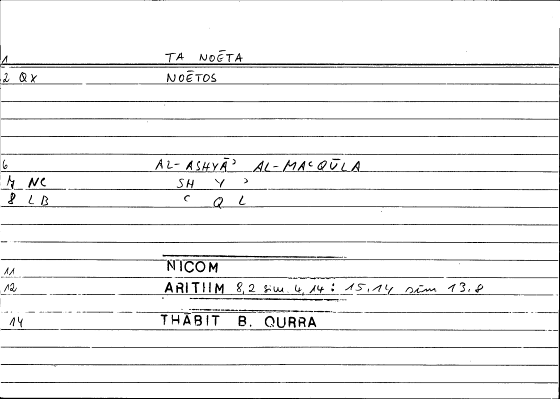 1 TA NOĒTA
2 QX NOĒTOS
6 AL-ASHYĀʾ AL-MAʿQŪLA
7 NC SH Y ʾ
8 LB ʿ Q L
11 NICOM
12 ARITIIM 8,2 sim. 4,14 : 15,14 sim 13.8
14 THĀBIT B. QURRA